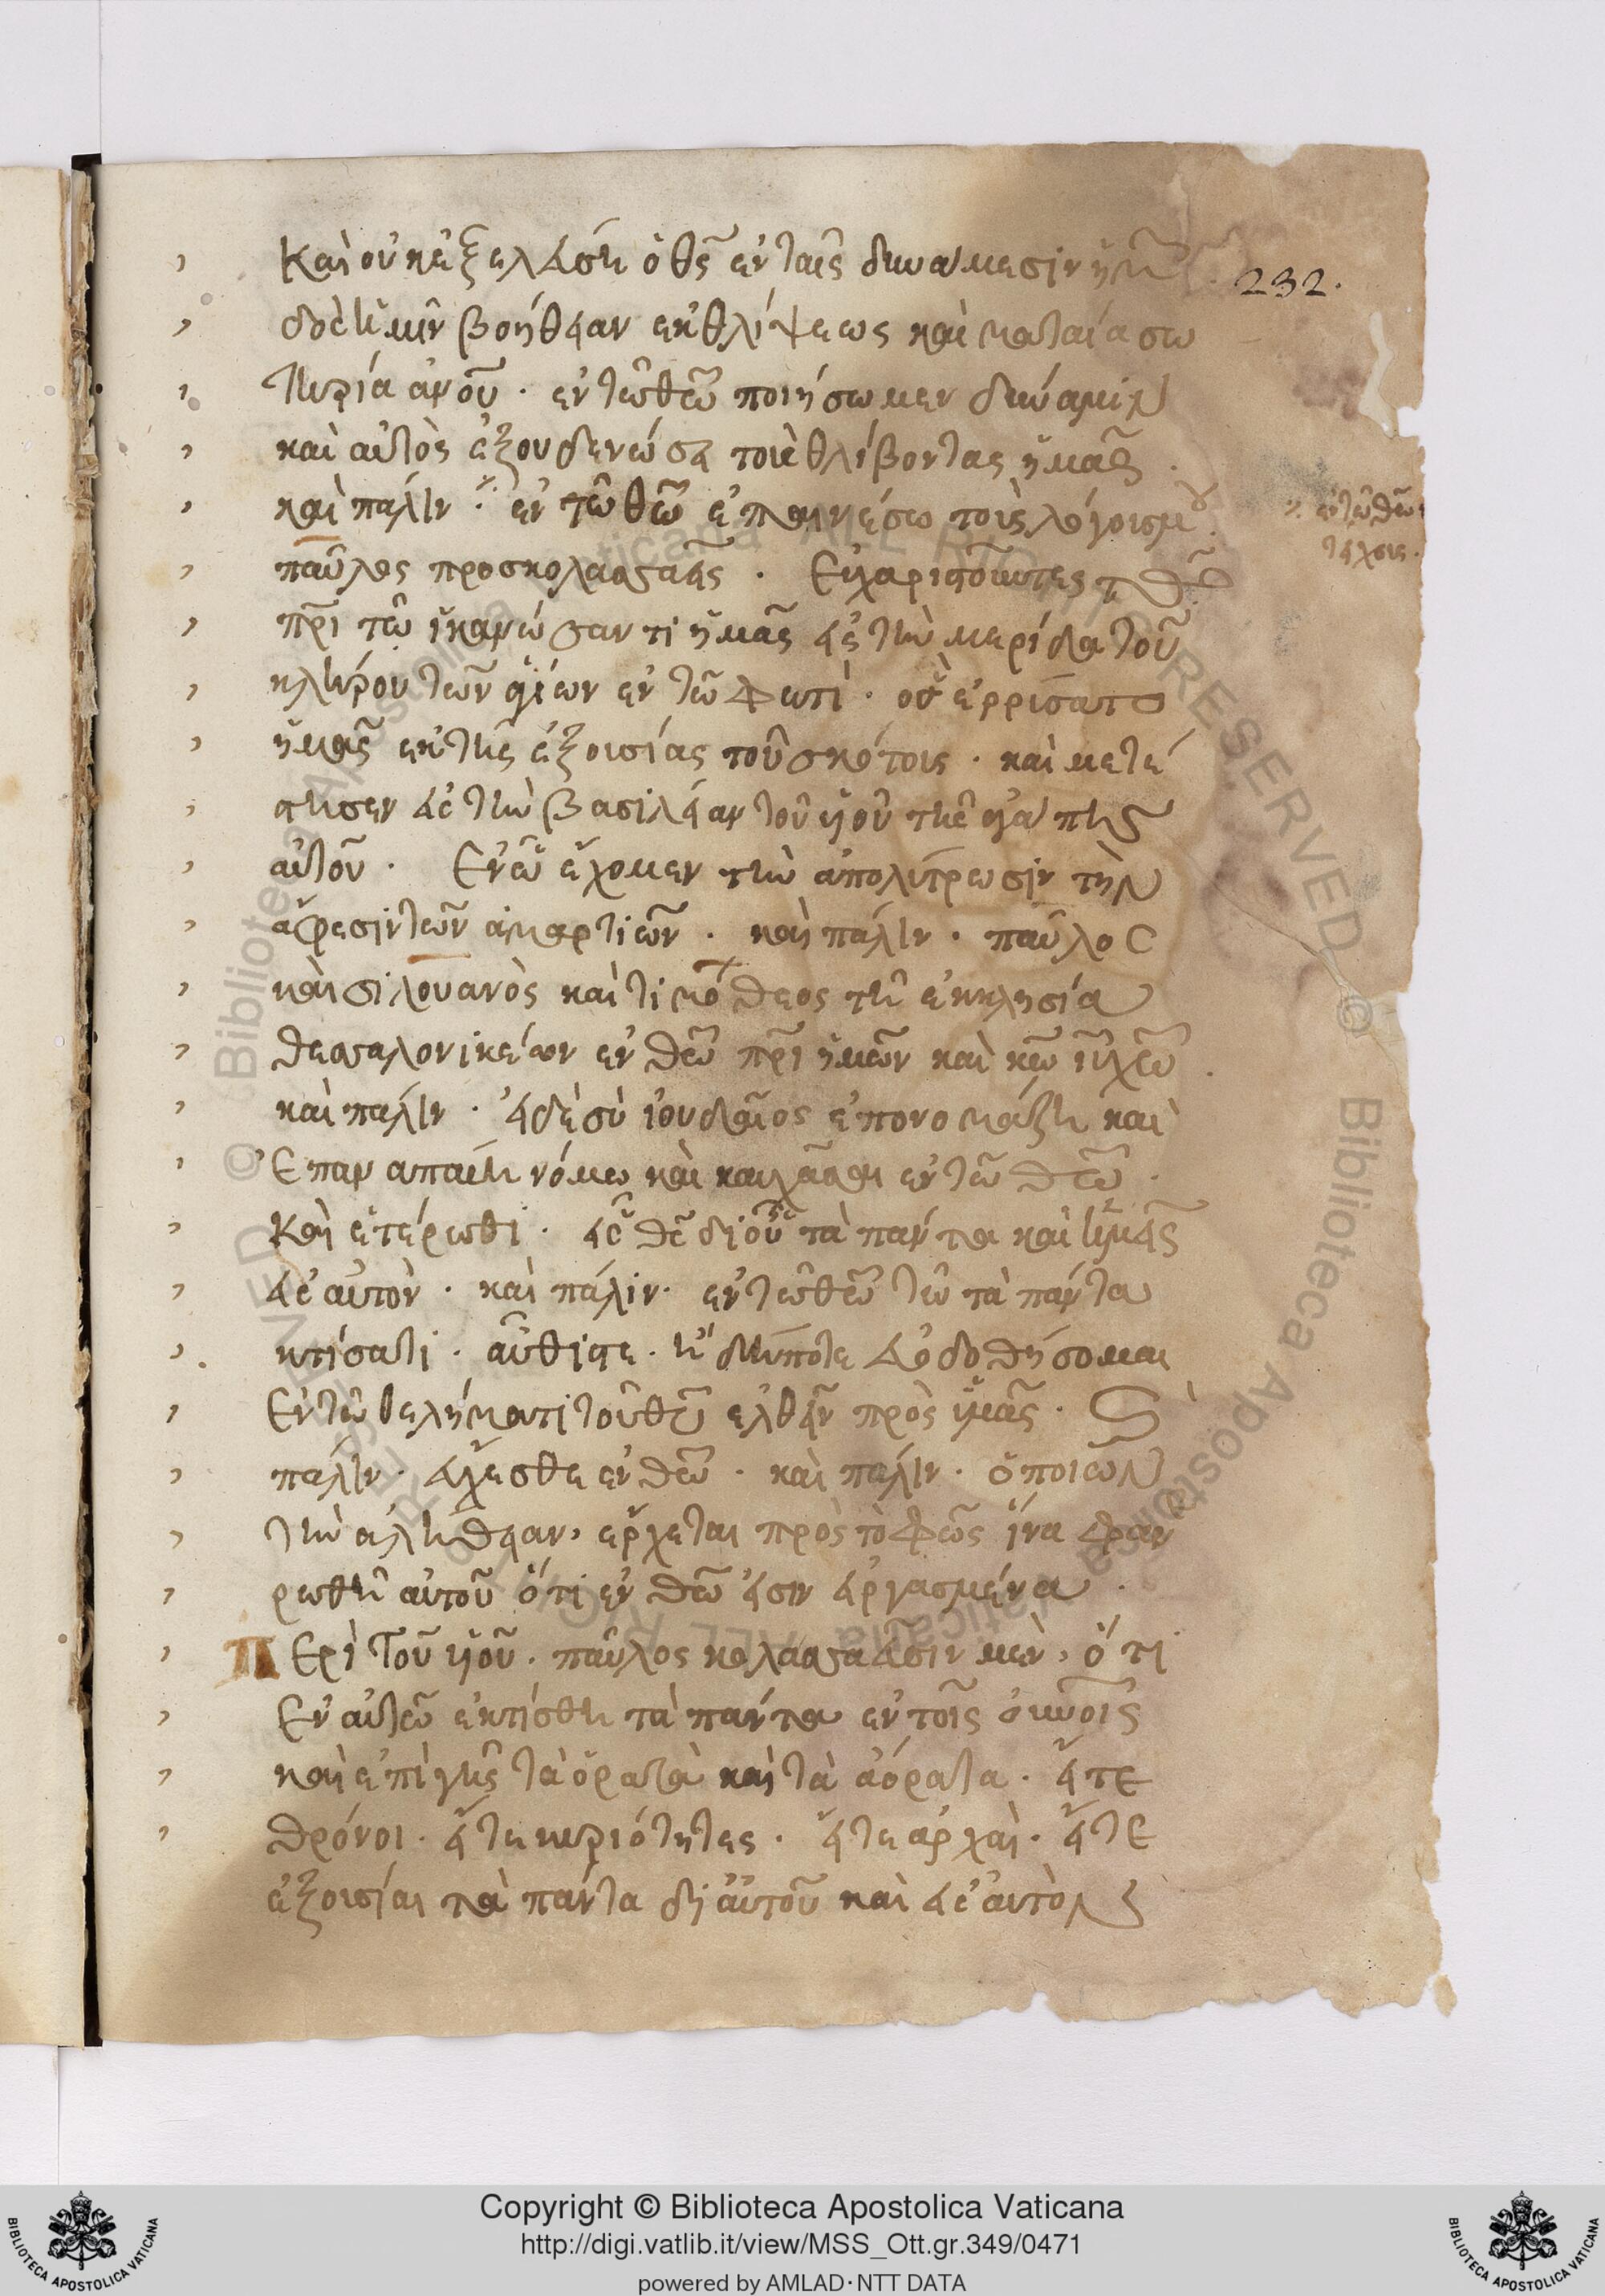 Καὶ οὐκ ἐξελεύση ὁ θς ἐν ταῖς δυνάμεσιν ἡμ
232.
δὸς ἡμῖν βοήθειαν ἐκ θλίψεως καὶ ματαία σω
τηρία ἀνου · ἐν τῶ θεῶ ποιήσωμεν δύναμιν
καὶ αὐτὸς ἐξουδενώσει τοὺς θλίβοντας ἡμᾶς ·
καὶ πάλιν · ἐν τῶ θεῶ ἐπαινέσω τοὺς λόγους μου ·
ἐν τῶ θεῶ
παῦλος προς κολασσαεῖς · Εὐχαριστοῦντες τῶ θεῶ
πρι τῶ ἱκανώσαντι ἡμᾶς εἰς τὴν μερίδα τοῦ
κλήρου τῶν ἁγίων ἐν τῶ φωτὶ · ὃς ἐρρύσατο
ἡμᾶς ἐκ τῆς ἐξουσίας τοῦ σκότους · καὶ μετέ
στησεν εἰς τὴν βασιλείαν τοῦ υἱοῦ τῆς ἀγάπης
αὐτοῦ · Ἐν ὧ ἔχομεν τὴν ἀπολύτρωσιν τὴν
ἄφεσιν τῶν ἁμαρτιῶν · καὶ πάλιν · παῦλος
καὶ σιλουανὸς καὶ τιμόθεος τῆ ἐκκλησία
θεσσαλονικέων ἐν θεῶ πρι ἡμῶν καὶ κω ιυ χω ·
καὶ πάλιν · εἰ δὲ σὺ ἰουδαῖος ἐπονομάζη καὶ
ἐπαναπαύη νόμω καὶ καυχᾶσαι ἐν τῶ θεῶ ·
Καὶ ἑτέρωθι · εἷς θς δι οὗ τὰ πάντα καὶ ἡμεῖς
εἰς αὐτὸν · καὶ πάλιν · ἐν τῶ θεῶ τῶ τὰ πάντα
κτίσαντι · αὖθίς τε · ἤδη ποτε εὐοδωθήσομαι
Ἐν τῶ θελήματι τοῦ θεοῦ ἐλθεῖν πρὸς ὑμᾶς · Καὶ
πάλιν · εὔχεσθε ἐν θεῶ · καὶ πάλιν · ὁ ποιῶν
τὴν ἀλήθειαν, ἔρχεται πρὸς τὸ φῶς ἵνα φαν
ρωθῆ αὐτοῦ ὅτι ἐν θεῶ εἰσιν εἰργασμένα ·
Περὶ τοῦ υἱοῦ · παῦλος κολασσαεῦσιν μὲν, ὅτι
Ἐν αὐτῶ ἐκτίσθη τὰ πάντα ἐν τοῖς οὐνοῖς
καὶ ἐπὶ γῆς τὰ ὁρατὰ καὶ τὰ ἀόρατα · εἴτε
θρόνοι · εἴτε κυριότητες · εἴτε ἀρχαὶ · εἴτε
ἐξουσίαι τὰ πάντα δι αὐτοῦ καὶ εἰς αὐτὸν
Copyright © Biblioteca Apostolica Vaticana
http://digi.vatlib.it/view/MSS_Ott.gr.349/0471
powered by AMLAD·NTT DATA
BIBLIOTECA APOSTOLICA VATICANA
BIBLIOTECA APOSTOLICA VATICANA